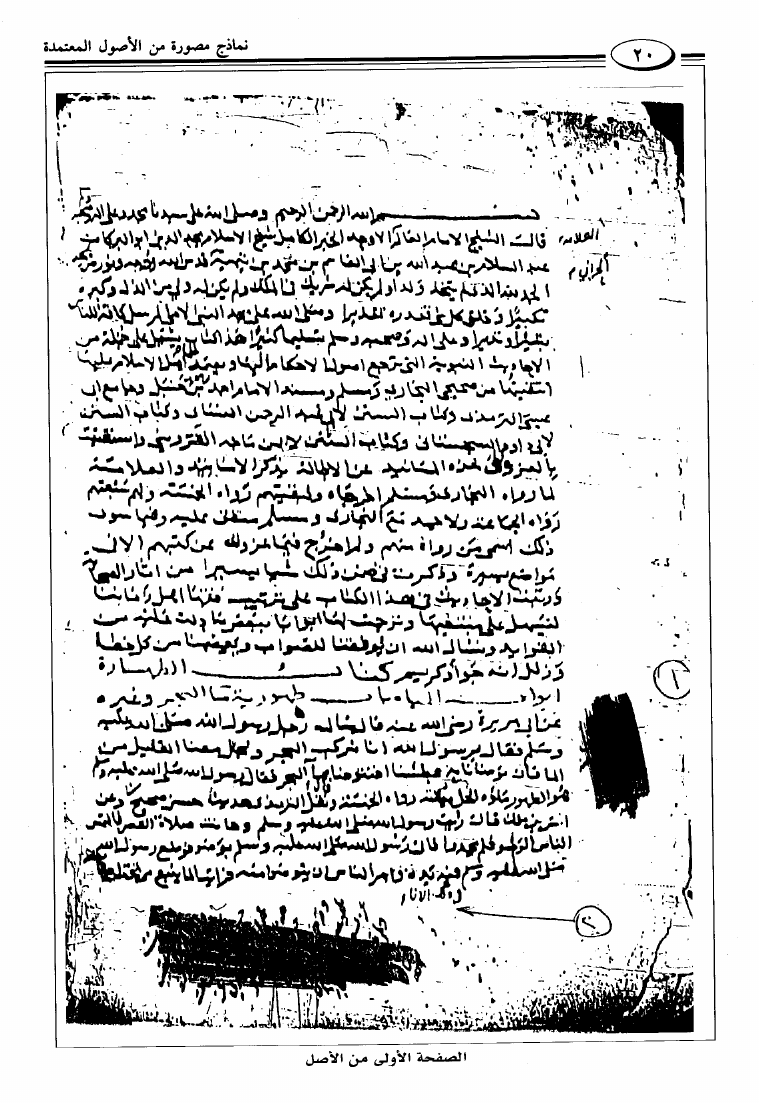 نماذج مصورة من الأصول المعتمدة
٢٠
بسم الله الرحمن الرحيم وصلى الله على سيدنا محمد وعلى اله
العلامه
الحراني
قال الشيخ الامام العالم الاوحد الحبر الكامل شيخ الاسلام مجد الدين ابو البركات
عبد السلام بن عبد الله بن ابي القاسم بن محمد بن تيمية قدس الله روحه ونور ضريحه
الحمد لله الذي لم يتخذ ولدا ولم يكن له شريك في الملك ولم يكن له ولي من الذل وكبره
تكبيرا وخلق كل شي فقدره تقديرا وصلى الله على محمد النبي الامي المرسل كافة للناس
بشيرا ونذيرا وعلى اله وصحبه وسلم تسليما كثيرا هذا كتاب يشتمل على جملة من
الاحاديث النبوية التي ترجع اصول الاحكام اليها ويعتمد الاسلام عليها
انتقيتها من صحيحي البخاري ومسلم ومسند الامام احمد بن حنبل وجامع ابي
عيسى الترمذي وكتاب السنن لابي عبد الرحمن النسائي وكتاب السنن
لابي داود السجستاني وكتاب السنن لابن ماجه القزويني واستغنيت
بالعزو الى هذه المسانيد عن الاطالة بذكر الاسانيد والعلامة
لما رواه البخاري ومسلم اخرجاه ولبقيتهم رواه الخمسة ولهم سبعتهم
رواه الجماعة ولاحمد مع البخاري ومسلم متفق عليه وفيما سوى
ذلك اسمي من رواه منهم ولم اخرج فيما عزوته عن كتبهم الا في
مواضع يسيرة وذكرت في ضمن ذلك شيا يسيرا من اثار الصحابة
ورتبت الاحاديث في هذا الكتاب على ترتيب فقهاء اهل زماننا
لتسهل على مبتغيها وترجمت لها ابوابا ببعض ما دلت عليه من
الفوايد ونسال الله ان يوفقنا للصواب ويعصمنا من كل خطا
وزلل انه جواد كريم كتاب الطهارة
ابواب المياه باب طهورية ماء البحر وغيره
عن ابي هريرة رضي الله عنه قال سال رجل رسول الله صلى الله عليه
وسلم فقال يرسول الله انا نركب البحر ونحمل معنا القليل من
الما فان توضانا به عطشنا افنتوضا بما البحر فقال رسول الله صلى الله عليه وسلم
هو الطهور ماؤه الحل ميتته رواه الخمسة وقال الترمذي هذا حديث حسن صحيح وعن
انس بن ملك قال رايت رسول الله صلى الله عليه وسلم وحانت صلاة العصر فالتمس
الناس الوضو فلم يجدوا فاتي رسول الله صلى الله عليه وسلم بوضو فوضع رسول الله
صلى الله عليه وسلم في يده فامر الناس ان يتوضوا منه فرايت الما ينبع من تحت
ذلك الاناء
١
٢
الصفحة الأولى من الأصل